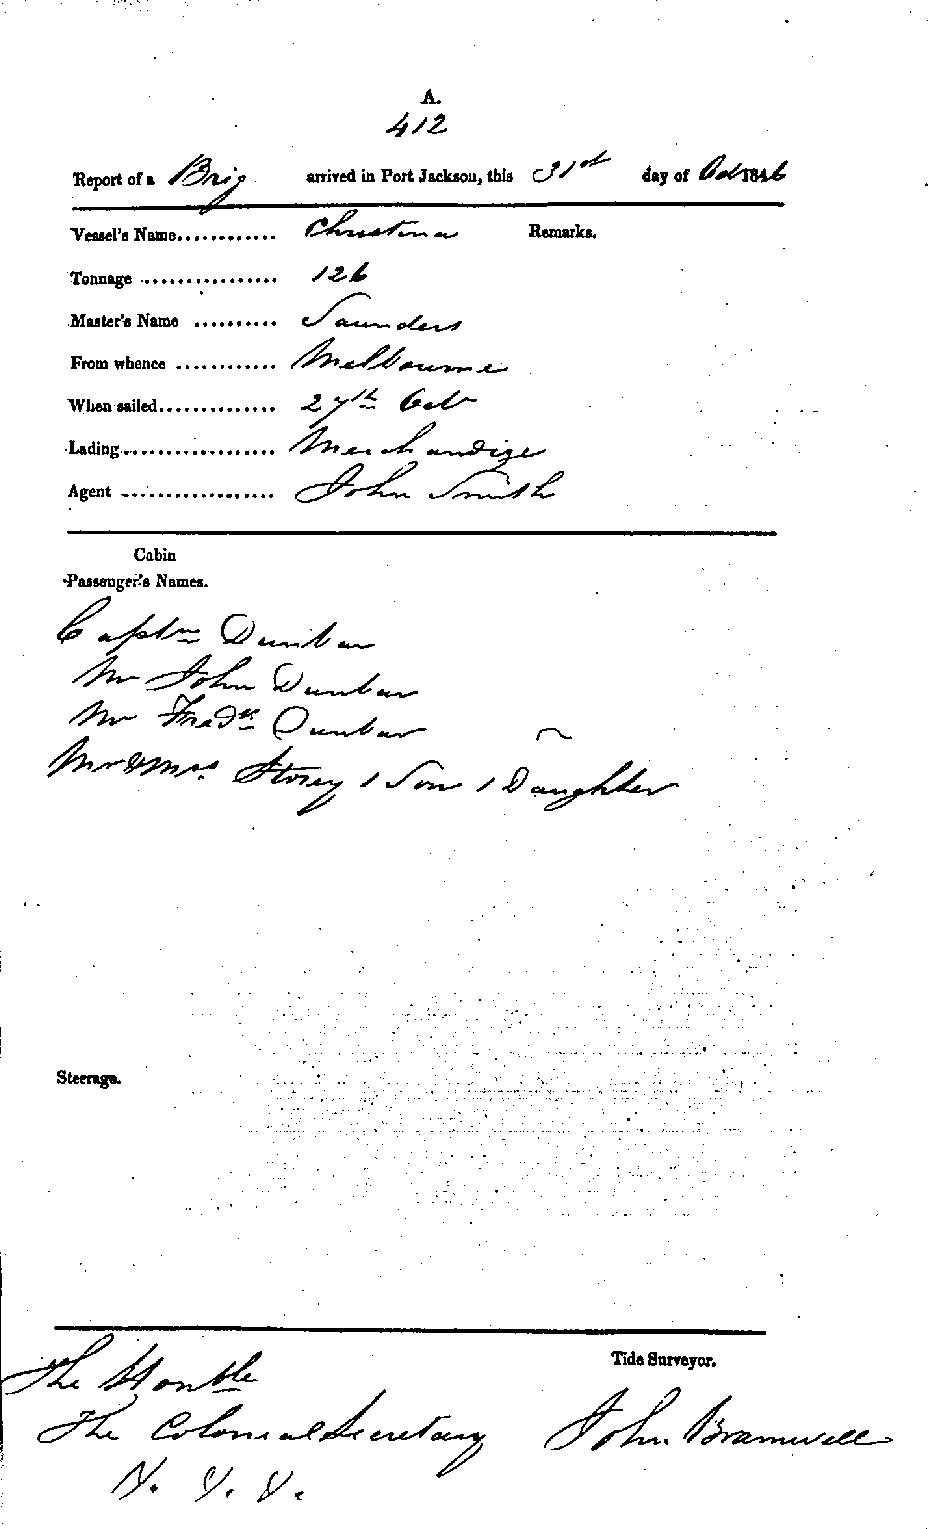 A.
412
Report of a Brig arrived in Port Jackson, this 31st day of Oct 1846
Vessel's Name............ Christina Remarks.
Tonnage ................. 126
Master's Name .......... Saunders
From whence ............ Melbourne
When sailed.............. 27th Octr
Lading................... Merchandize
Agent .................. John Smith
Cabin
Passenger's Names.
Captn Dunbar
Mr John Dunbar
Mr Fredk Dunbar
Mr & Mrs Storey 1 Son 1 Daughter
Steerage.
Tide Surveyor.
The Honble
The Colonial Secretary John Bramwell